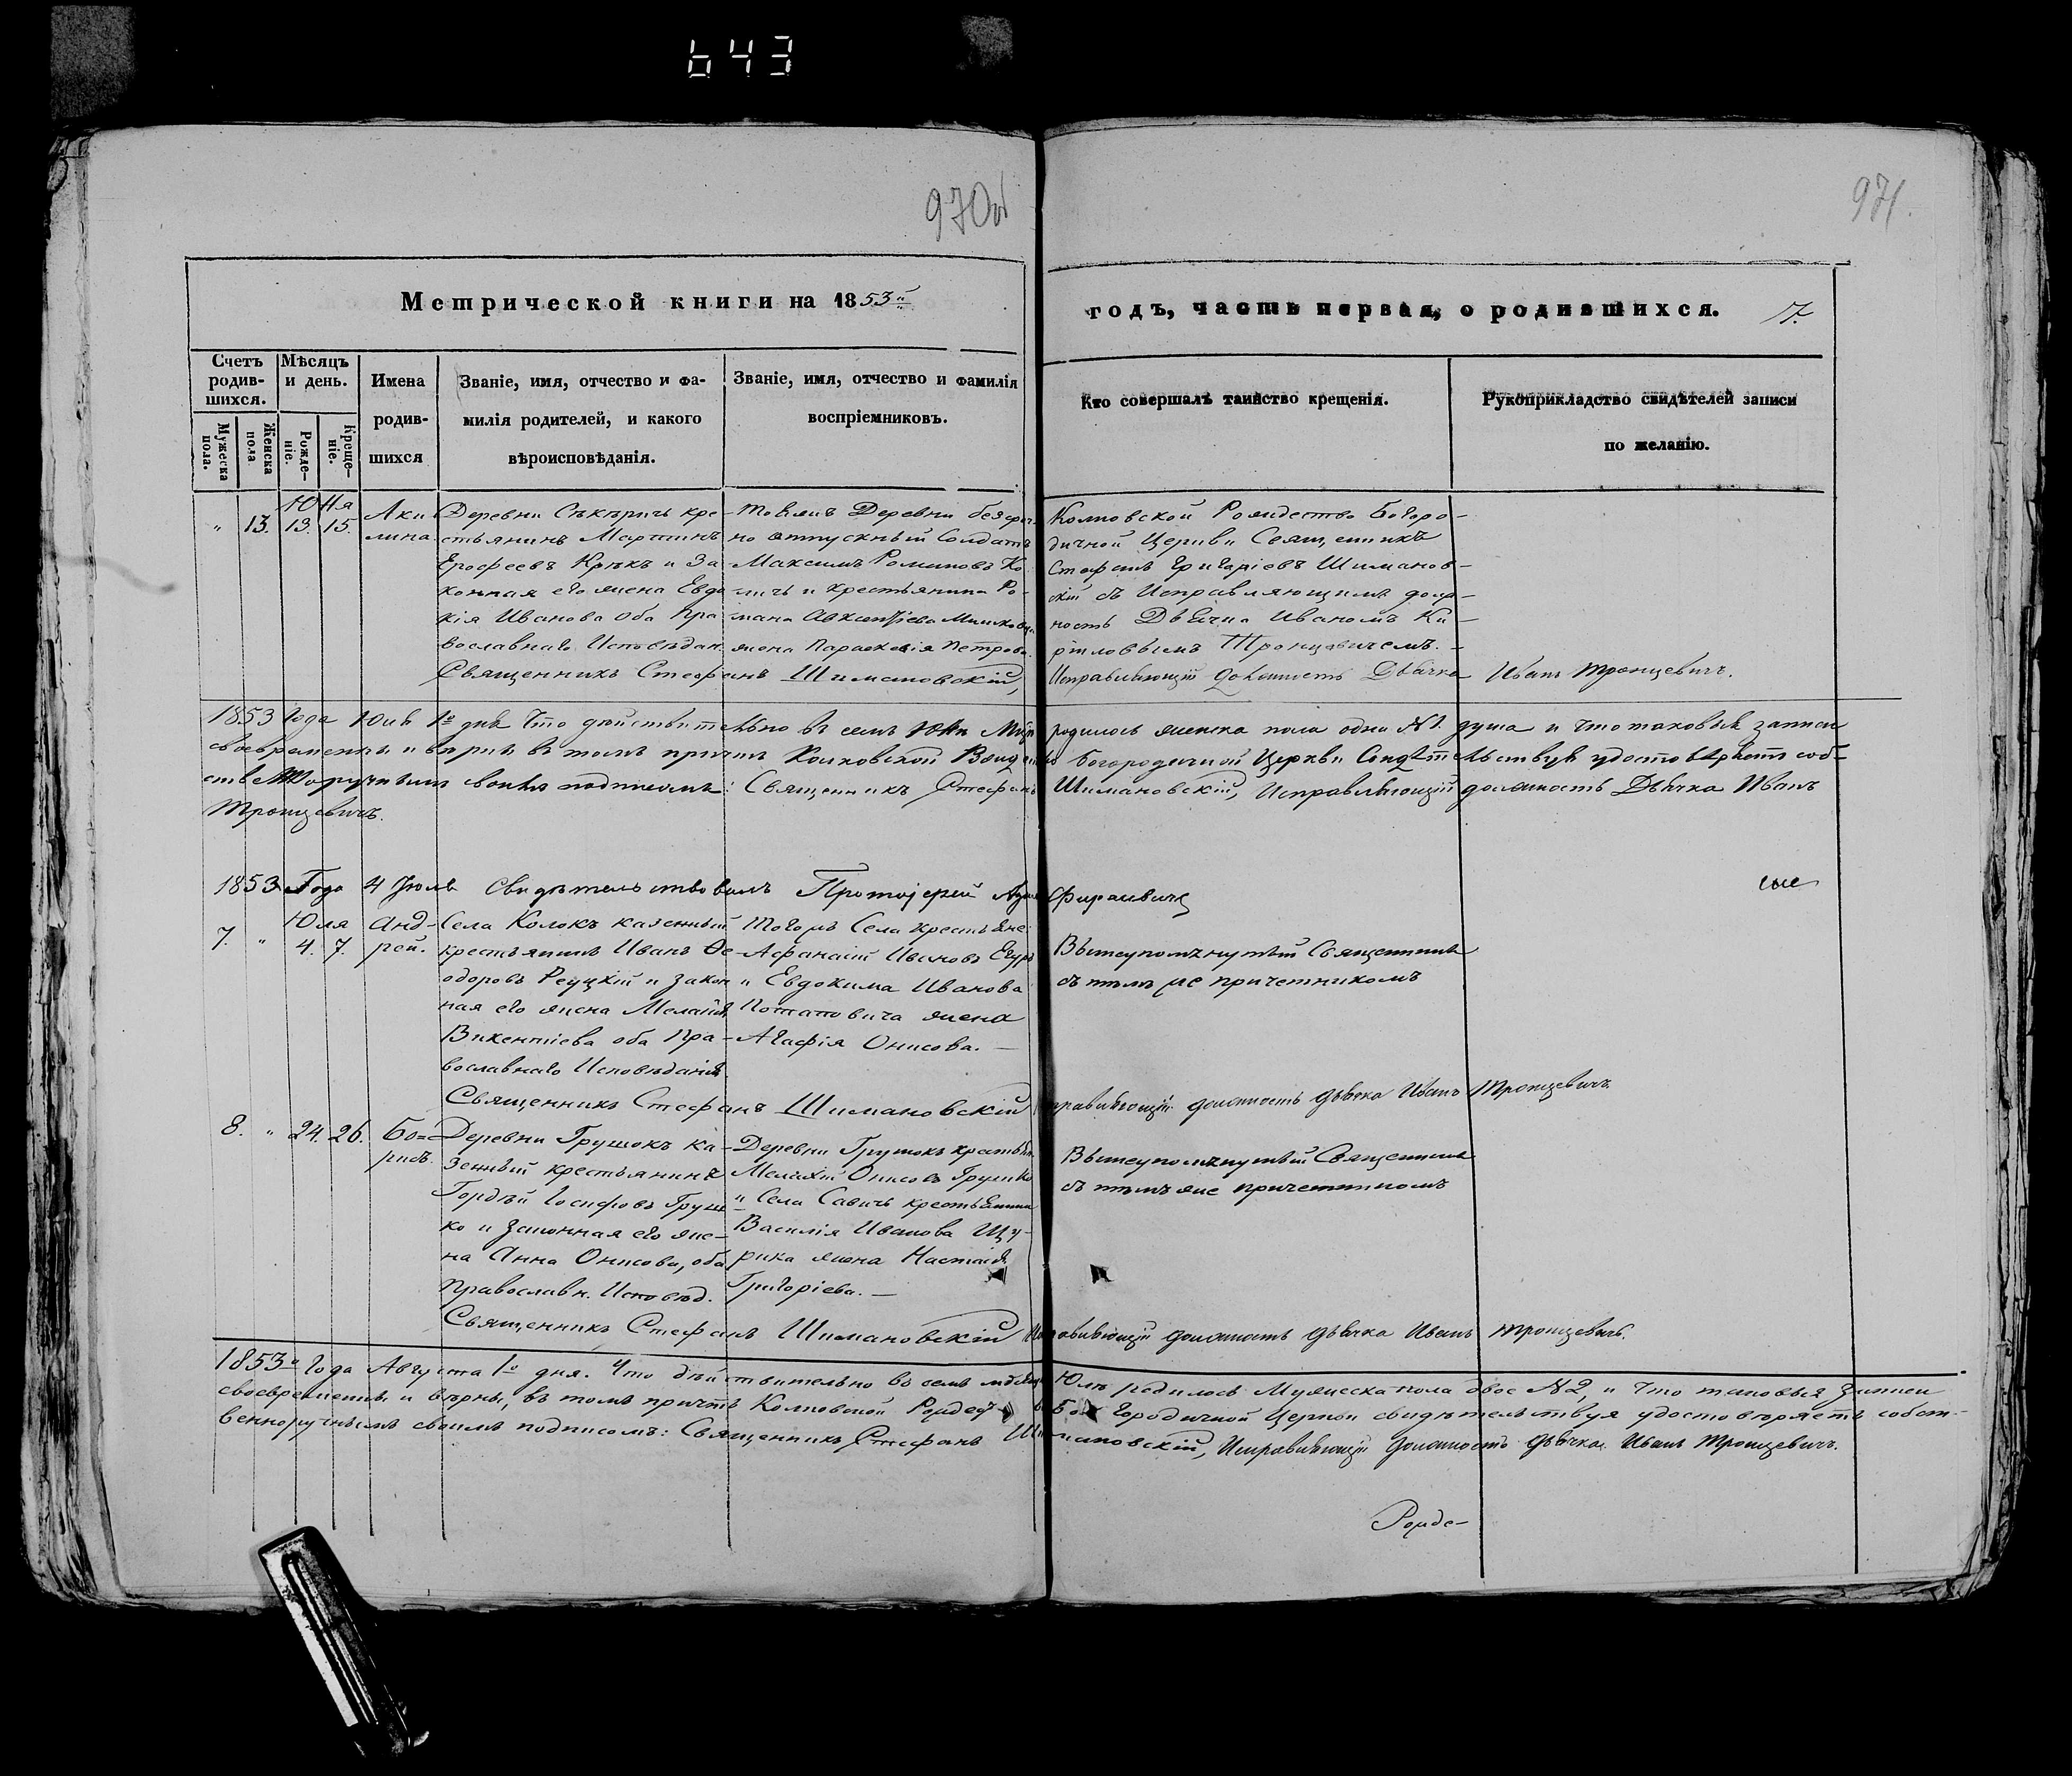 643
970об
971.
Метрической книги на 1853й
годъ, часть первая, о родившихся. 17.
Счетъ родив-шихся.
Мѣсяцъ и день.
Имена родив-шихся
Званіе, имя, отчество и фа-
милія родителей, и какого
вѣроисповѣданія.
Званіе, имя, отчество и фамилія
воспріемниковъ.
Кто совершалъ таинство крещенія.
Рукоприкладство свидѣтелей записи
по желанію.
Мужеска пола.
Женска пола
Рожде-ніе.
Креще-ніе.
Юня
" 13. 13. 15.
Аки
лина
Деревни кре-
стьянинъ Мартинъ
Ерофеевъ и За
конная его жена Евдо
кія Иванова оба Пра
вославнаго Исповѣдан.
Деревни
но отпускный Солдатъ
Максимъ Романовъ
и крестьянина Ро-
мана
жена Параскевія Петрова.
Колковской Рождество Богоро-
дичной Церкви Священникъ
Стефанъ Григоріевъ Шиманов-
скій съ Исправляющимъ долж-
ность Дьячка Иваномъ Ки-
риловымъ Тронцевичемъ.
Священникъ Стефанъ Шимановскій,
Исправляющій должность Дьячка Иванъ Тронцевичъ.
1853 Года Юля 1го дня Что дѣйствительно въ семъ Юнѣ родилось женска пола одна №1. душа и что таковыя записи
своевременны и вѣрны въ томъ причтъ Колковской Богородичной Церкви Свидѣтельствуя удостовѣряетъ соб-
ственноручнымъ своимъ подписомъ: Священникъ Стефанъ Шимановскій, Исправляющій должность Дьячка Иванъ
Тронцевичъ.
1853 Года 4 Іюля Свидѣтельствовалъ Протоіерей
Юля
7. " 4. 7.
Анд-
рей.
Села Колокъ казенный
крестьянинъ Иванъ Ѳе-
одоровъ Рецкій и закон
ная его жена Меланія
Викентіева оба Пра-
вославнаго Исповѣданія.
Тогожъ Села крестьяне:
Афанасій Ивановъ
и Евдокима Иванова
Потаповича жена
Агафія Онисова. —
Вышеупомянутый Священникъ
съ тѣмъ же причетникомъ
Священникъ Стефанъ Шимановскій
должность дьячка Иванъ Тронцевичъ
8. " 24. 26.
Бо-
рисъ.
Деревни Грушокъ ка-
зенный крестьянинъ
Гордѣй Іосифовъ Груш
ко и Законная его же-
на Анна Онисова, оба
Православн. Исповѣд.
Деревни Грушокъ крестьян.
Онисовъ Грушко
и Села Савичъ крестьянина
Василія Иванова Щу-
рика жена Настасія
Григоріева. —
Вышеупомянутый Священникъ
съ тѣмъ же причетникомъ
Священникъ Стефанъ Шимановскій
Исправляющій должность дьячка Иванъ Тронцевичъ.
1853го Года Августа 1го дня. Что дѣйствительно въ семъ мѣсяцѣ Юлѣ родилось Мужеска пола двое №2, и что таковыя записи
своевременны и вѣрны, въ томъ причтъ Колковской Рождество Богородичной Церкви свидѣтельствуя удостовѣряетъ собст-
венноручнымъ своимъ подписомъ: Священникъ Стефанъ Шимановскій, Исправляющій должность дьячка Иванъ Тронцевичъ.
Рожде-